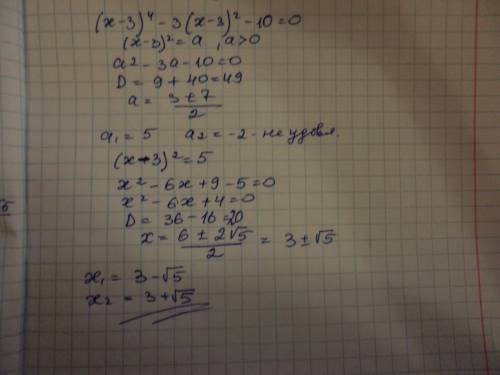 (x-3)⁴ - 3(x-3)² - 10 = 0
(x-3)² = a , a>0
a2 - 3a - 10 = 0
D = 9 + 40 = 49
a = (3 ± 7)/2
a₁ = 5 a₂ = -2 - не удовл.
(x-3)² = 5
x² - 6x + 9 - 5 = 0
x² - 6x + 4 = 0
D = 36 - 16 = 20
x = (6 ± 2√5)/2 = 3 ± √5
x₁ = 3 - √5
x₂ = 3 + √5